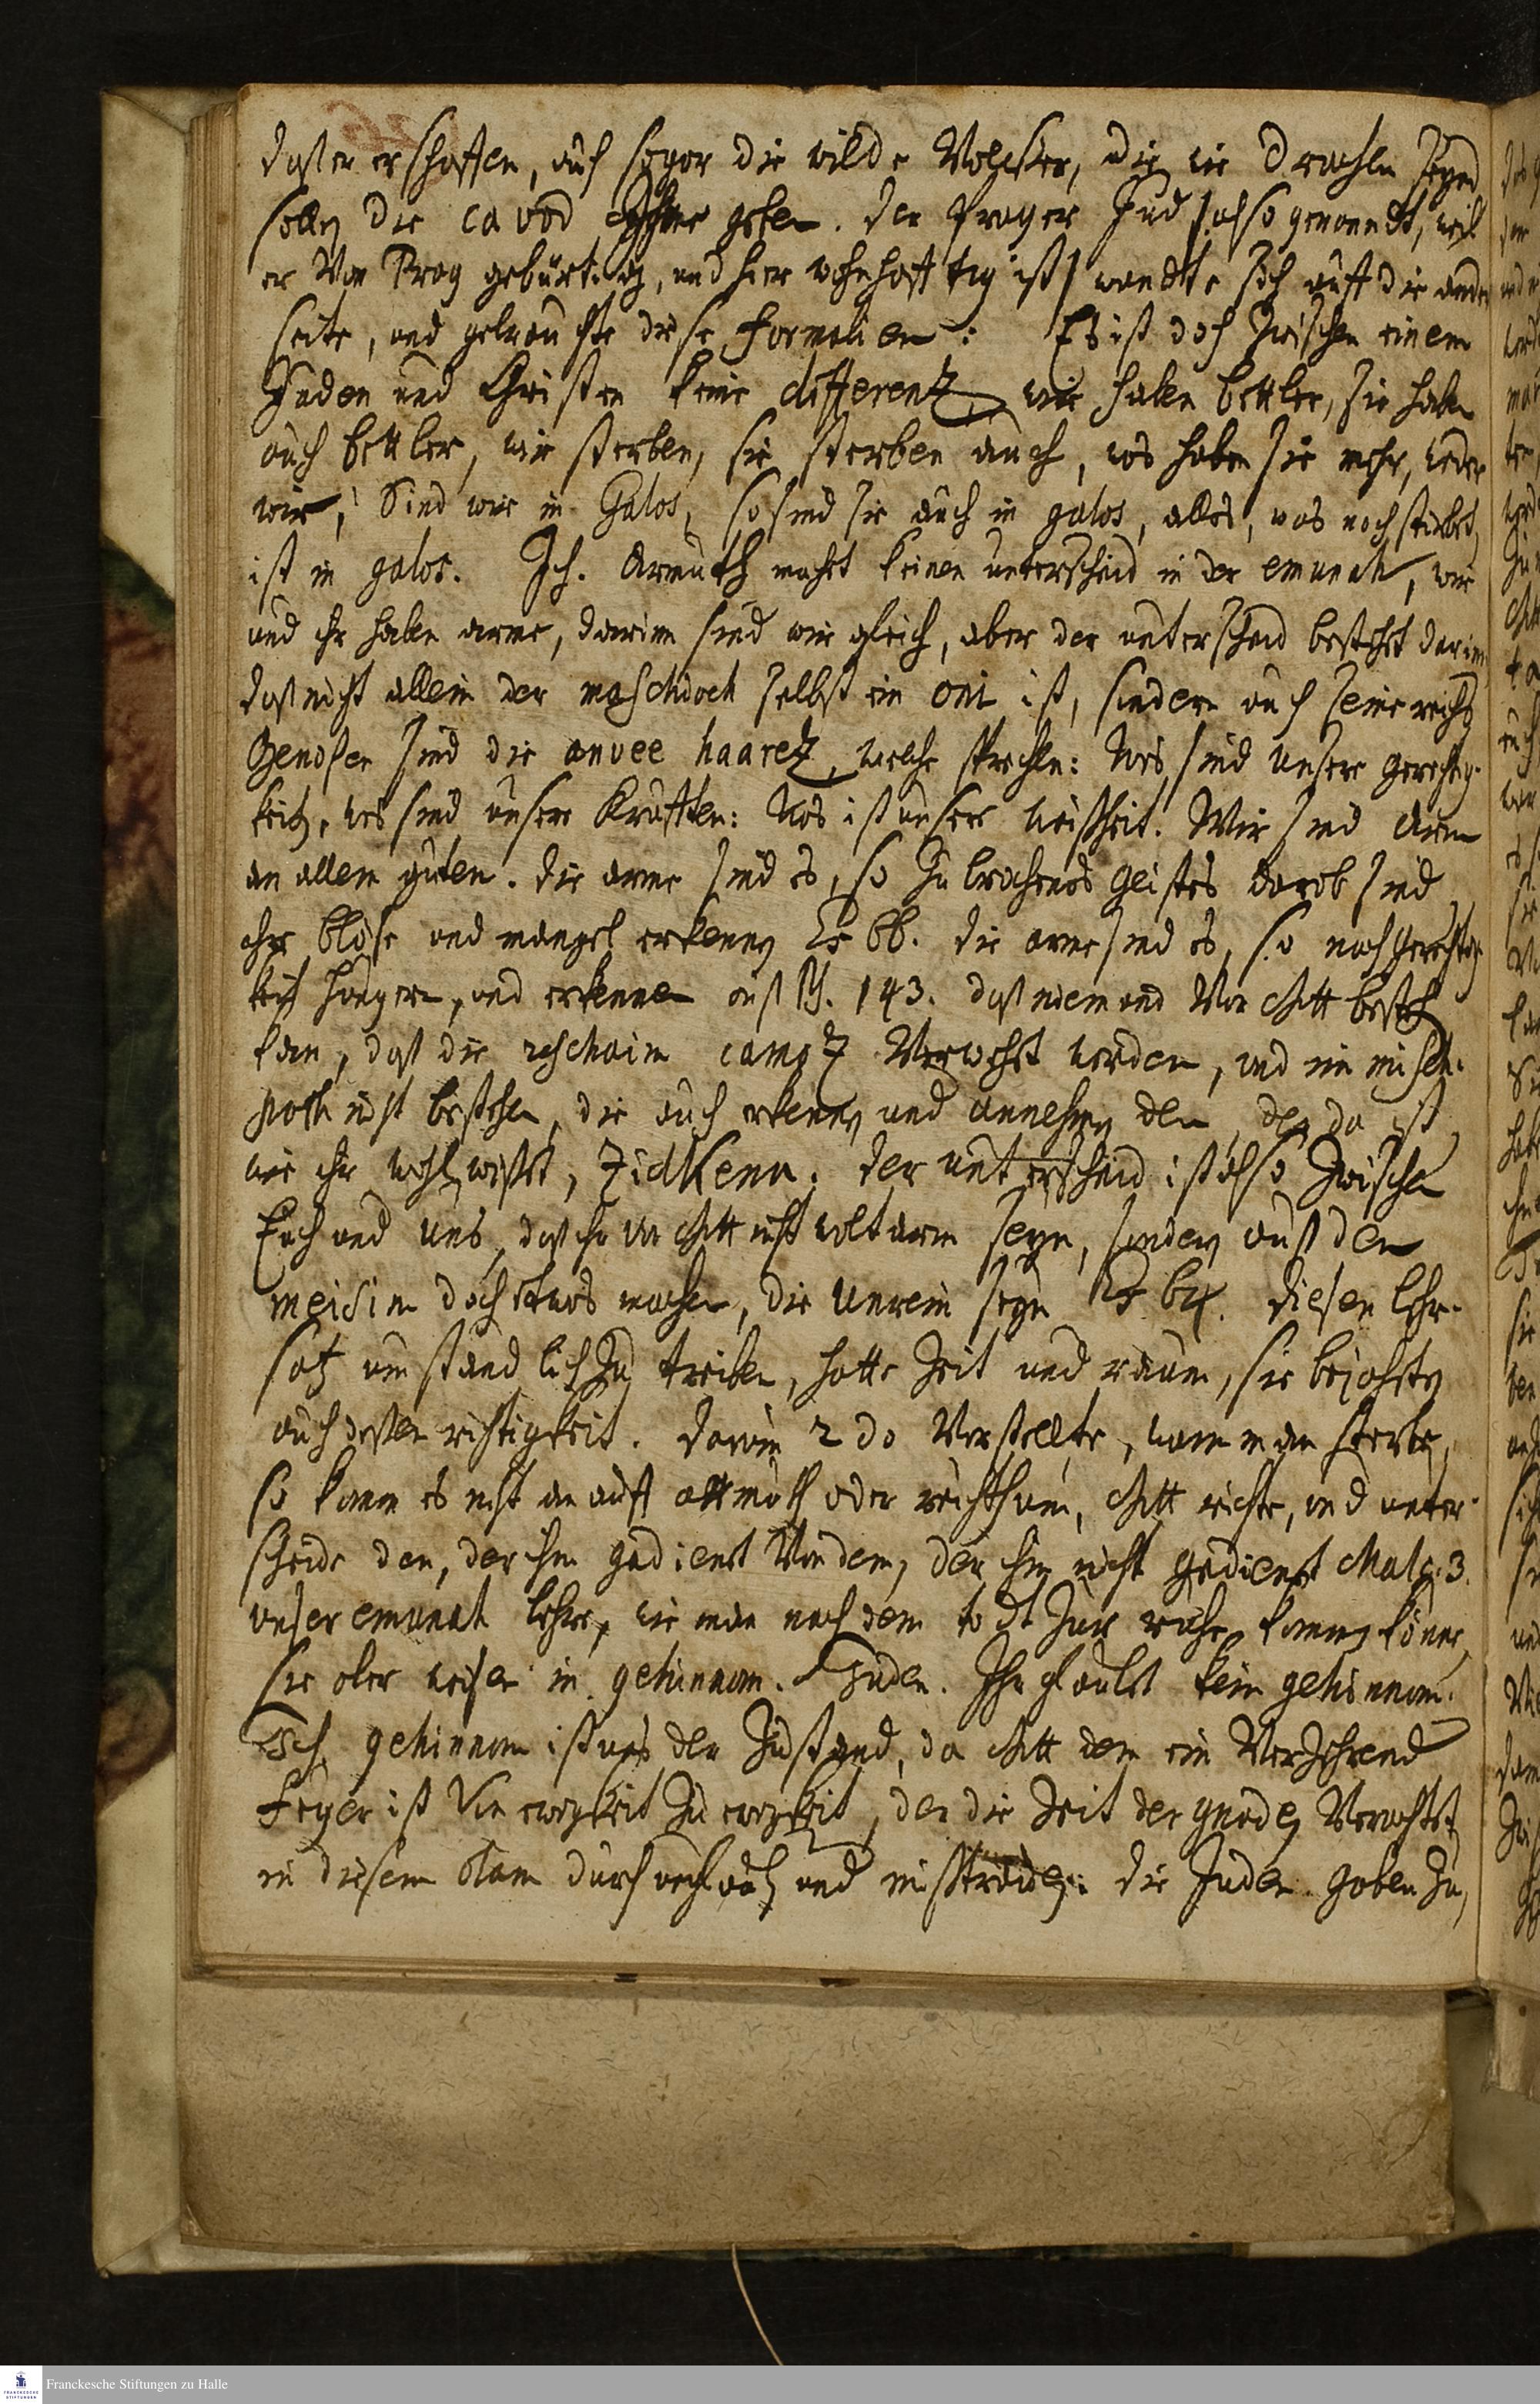 daß er erschaffen, auch sogar die wilde Völcker, die wie Drachen seynd
solln die cavod Ihme geben. der Prager Jud /: also genandt, weil
er Von Prag gebürtig, und hier wohnhafftig ist / wandte sich auff die ander
seite, und gebrauchte diese formalien: Es ist doch zwischen einem
Juden und Christen keine differentz, wir haben bettler, sie haben
auch bettler, wir sterben, sie sterben auch, was haben sie mehr, weder
wir, Sind wir in Galos, so sind sie auch in galos, alles, was noch stirbet,
ist in galos. Ich. Armuth macht keinen unterscheid in der emunah, wir
und ihr haben arme, darinn sind wir gleich, aber der unterscheid bestehet darinn
daß nicht allein der maschiach selbst ein oni ist, sondern auch seine reichs
Genoßen sind die anvee haaretz, welche sprechen: Was sind unsere gerechtig-
keitn, was sind unsere Krafften: Was ist unser weißheit. Wir sind arm
an allem guten. die arme sind es, so zubrochenes Geistes darob sind,
ihre blöse und mangel erkennen Es 66. die arme sind es, so nach Gerechtig-
keit hungern, und erkennen auß Ps. 143. daß niemand Vor Gott bestehen
kan, daß die reschaim camoz Verwehet werden, und im misch-
poth nicht bestehen, die auch erkennen und annehmen den, der da ist
wie ihr wohl wißet, Zidkenu. der unterscheid ist also zwischen
Euch und uns, daß ihr vor Gott nicht wolt arm seyn, sondern auß den
meisim doch etwas machen, die unrein seyn Es 64. diesen lehr-
satz umständlich zu treiben, hatte Zeit und raum, sie bejahetn
auch deßen richtigkeit. darum 2do Vorstellte, wann man sterbe,
so komm es nicht an auff armuth oder reichthum, Gott richte, und unter-
scheide den, der ihm gedienet Von dem, der ihm nicht gedienet Malc. 3.
unser emunah lehre, wie man nach dem todt zur ruhe kommen könne,
sie aber weise in gehinnom. Juden. Ihr glaubt kein gehinnom.
Ich. gehinnom ist uns der Zustand, da Gott dem ein Verzehrend
feyer ist Von ewigkeit zu ewigkeit, der die Zeit der gnaden Verachtet
in diesem Olam durch und mißtrauen: die Juden gaben zu,
Franckesche Stiftungen zu Halle